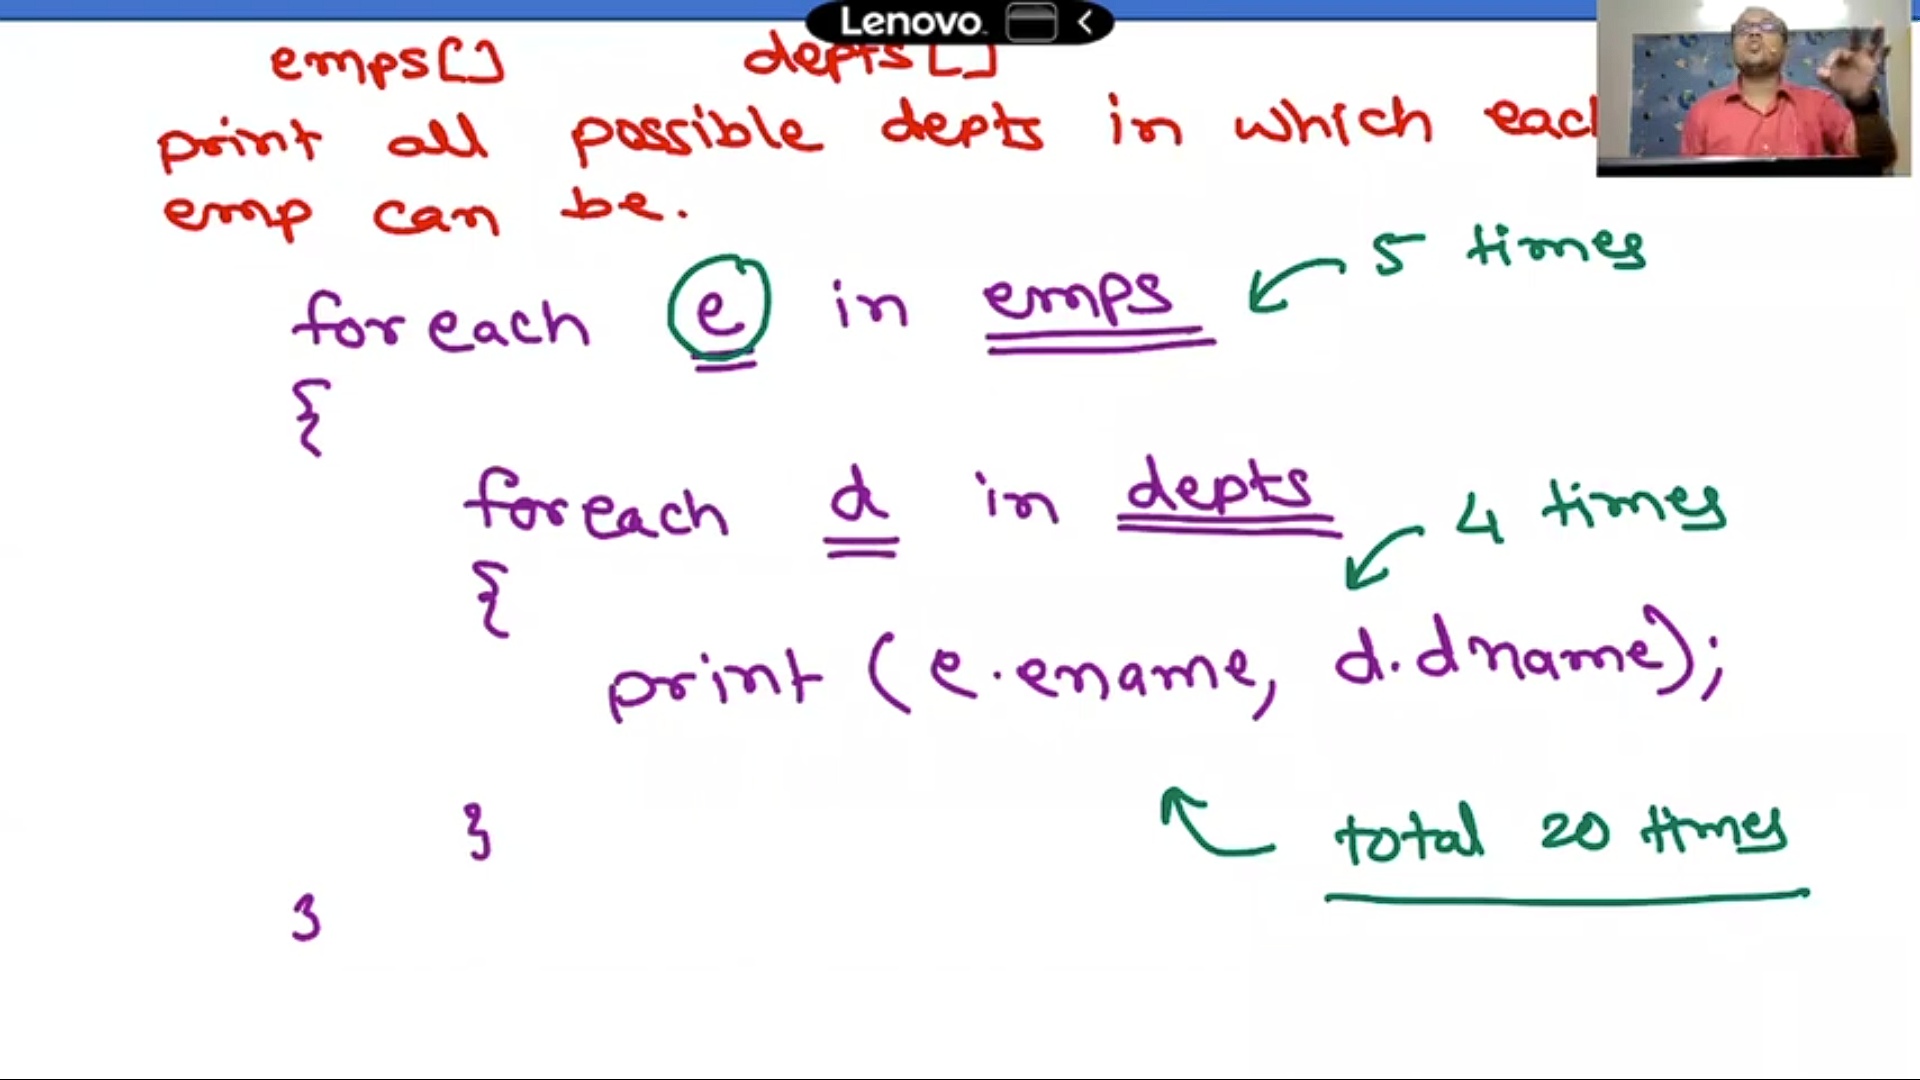 Lenovo
emps[] depts[]
print all possible depts in which
emp can be.
foreach e in emps 5 times
{
foreach d in depts 4 times
{
print (e.ename, d.dname);
}
total 20 times
}